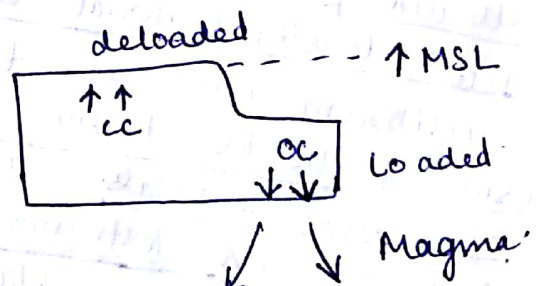 deloaded
↑ MSL
↑ ↑
CC
OC
Loaded
↓ ↓
Magma